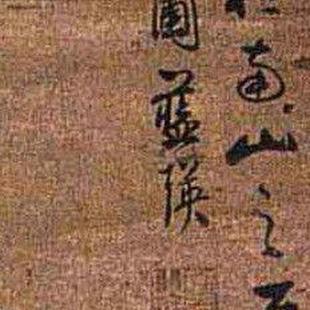 南山之
圃藍瑛